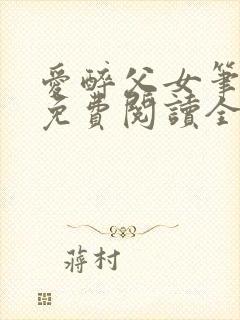 愛醉父女筆
免費閱讀全
蔣村